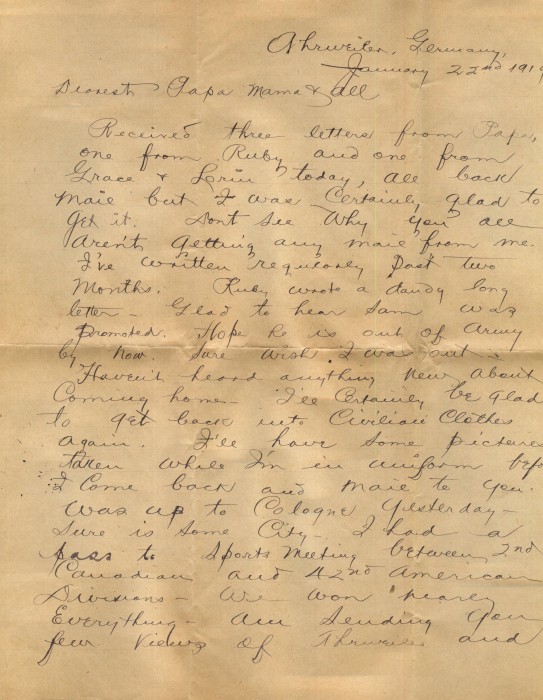 Ahrweiler, Germany,
January 22nd 1919
Dearest Papa Mama & all
Received three letters from Papa,
one from Ruby and one from
Grace & Lorin today, all back
mail but I was Certainly glad to
get it. Dont see Why you all
Aren't getting any mail from me.
I've written regularly past two
Months. Ruby wrote a dandy long
letter - Glad to hear Sam was
Promoted. Hope he is out of Army
by now. Sure wish I was out -
Haven't heard anything New About
Coming home - I'll Certainly be glad
to get back into Civilian Clothes
again. I'll have some pictures
taken while I'm in uniform before
I Come back and Mail to you.
Was up to Cologne yesterday -
Sure is Some City - I had a
pass to Sports Meeting between 2nd
Canadian and 42nd American
Divisions - We won nearly
Everything - Am Sending you
few Views of Ahrweiler and